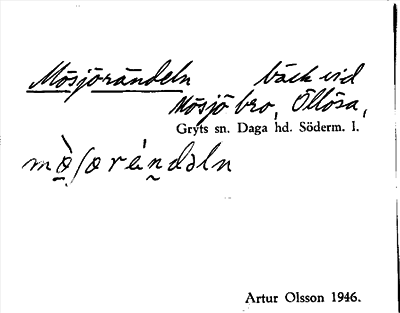 Mösjörändeln bäck vid
Mösjö bro, Öllösa,
Gryts sn. Daga hd. Söderm. l.
mö̀ʃœrén̠dəln
Artur Olsson 1946.